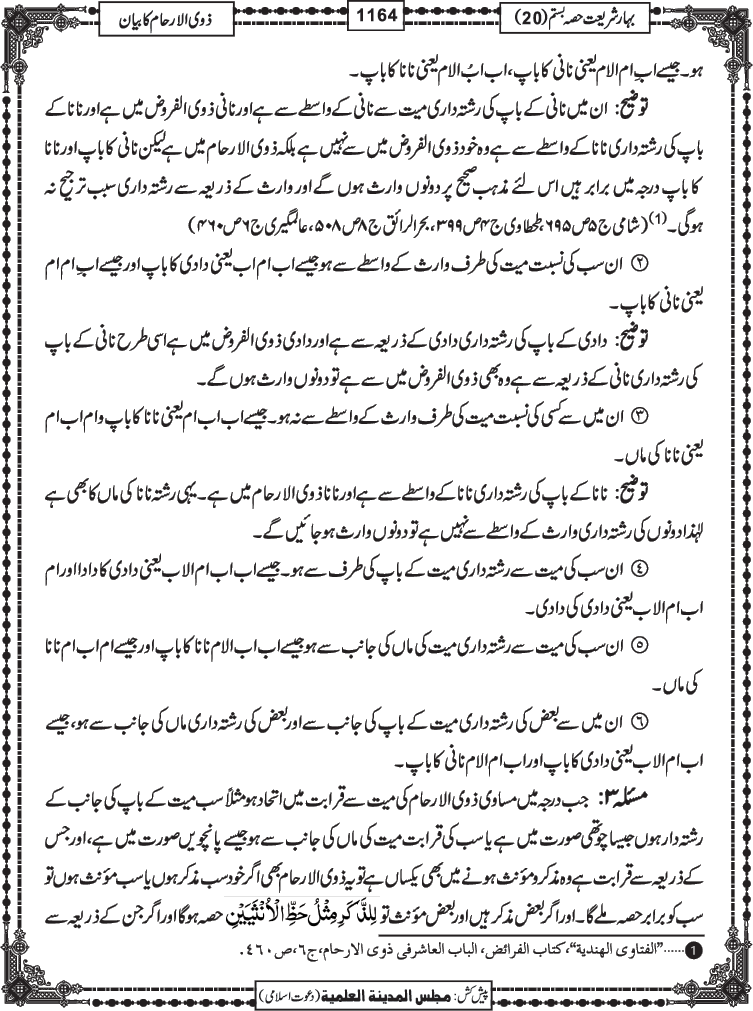 بہار شریعت حصہ بستم (20)
1164
ذوی الارحام کا بیان
ہو۔ جیسے اب ام الام یعنی نانی کا باپ، اب ابُ الام یعنی نانا کا باپ۔
توضیح: ان میں نانی کے باپ کی رشتہ داری میت سے نانی کے واسطے سے ہے اور نانی ذوی الفروض میں ہے اور نانا کے
باپ کی رشتہ داری نانا کے واسطے سے ہے وہ خود ذوی الفروض میں سے نہیں ہے بلکہ ذوی الارحام میں ہے لیکن نانی کا باپ اور نانا
کا باپ درجہ میں برابر ہیں اس لئے مذہب صحیح پر دونوں وارث ہوں گے اور وارث کے ذریعہ سے رشتہ داری سبب ترجیح نہ
ہوگی۔(1) (شامی ج۵ ص۶۹۵، طحطاوی ج۴ ص۳۹۹، بحرالرائق ج۸ ص۵۰۸، عالمگیری ج۶ ص۴۶۰)
② ان سب کی نسبت میت کی طرف وارث کے واسطے سے ہو جیسے اب ام اب یعنی دادی کا باپ اور جیسے ابِ ام ام
یعنی نانی کا باپ۔
توضیح: دادی کے باپ کی رشتہ داری دادی کے ذریعہ سے ہے اور دادی ذوی الفروض میں ہے اسی طرح نانی کے باپ
کی رشتہ داری نانی کے ذریعہ سے ہے وہ بھی ذوی الفروض میں سے ہے تو دونوں وارث ہوں گے۔
③ ان میں سے کسی کی نسبت میت کی طرف وارث کے واسطے سے نہ ہو۔ جیسے اب اب ام یعنی نانا کا باپ و ام اب ام
یعنی نانا کی ماں۔
توضیح: نانا کے باپ کی رشتہ داری نانا کے واسطے سے ہے اور نانا ذوی الارحام میں ہے۔ یہی رشتہ نانا کی ماں کا بھی ہے
لہٰذا دونوں کی رشتہ داری وارث کے واسطے سے نہیں ہے تو دونوں وارث ہو جائیں گے۔
④ ان سب کی میت سے رشتہ داری میت کے باپ کی طرف سے ہو۔ جیسے اب اب ام الاب یعنی دادی کا دادا اور ام
اب ام الاب یعنی دادی کی دادی۔
⑤ ان سب کی میت سے رشتہ داری میت کی ماں کی جانب سے ہو جیسے اب اب الام نانا کا باپ اور جیسے ام اب ام نانا
کی ماں۔
⑥ ان میں سے بعض کی رشتہ داری میت کے باپ کی جانب سے اور بعض کی رشتہ داری ماں کی جانب سے ہو، جیسے
اب ام الاب یعنی دادی کا باپ اور اب ام الام نانی کا باپ۔
مسئلہ ۳: جب درجہ میں مساوی ذوی الارحام کی میت سے قرابت میں اتحاد ہو مثلاً سب میت کے باپ کی جانب کے
رشتہ دار ہوں جیسا چوتھی صورت میں ہے یا سب کی قرابت میت کی ماں کی جانب سے ہو جیسے پانچویں صورت میں ہے، اور جس
کے ذریعہ سے قرابت ہے وہ مذکر و مؤنث ہونے میں بھی یکساں ہے تو یہ ذوی الارحام بھی اگر خود سب مذکر ہوں یا سب مؤنث ہوں تو
سب کو برابر حصہ ملے گا۔ اور اگر بعض مذکر ہیں اور بعض مؤنث تو لِلذَّكَرِ مِثْلُ حَظِّ الْاُنْثَيَيْنِ حصہ ہوگا اور اگر جن کے ذریعہ سے
1 ......"الفتاوی الهندية"، کتاب الفرائض، الباب العاشر فی ذوی الارحام، ج٦، ص٤٦٠.
پیش کش: مجلس المدينة العلمية (دعوت اسلامی)